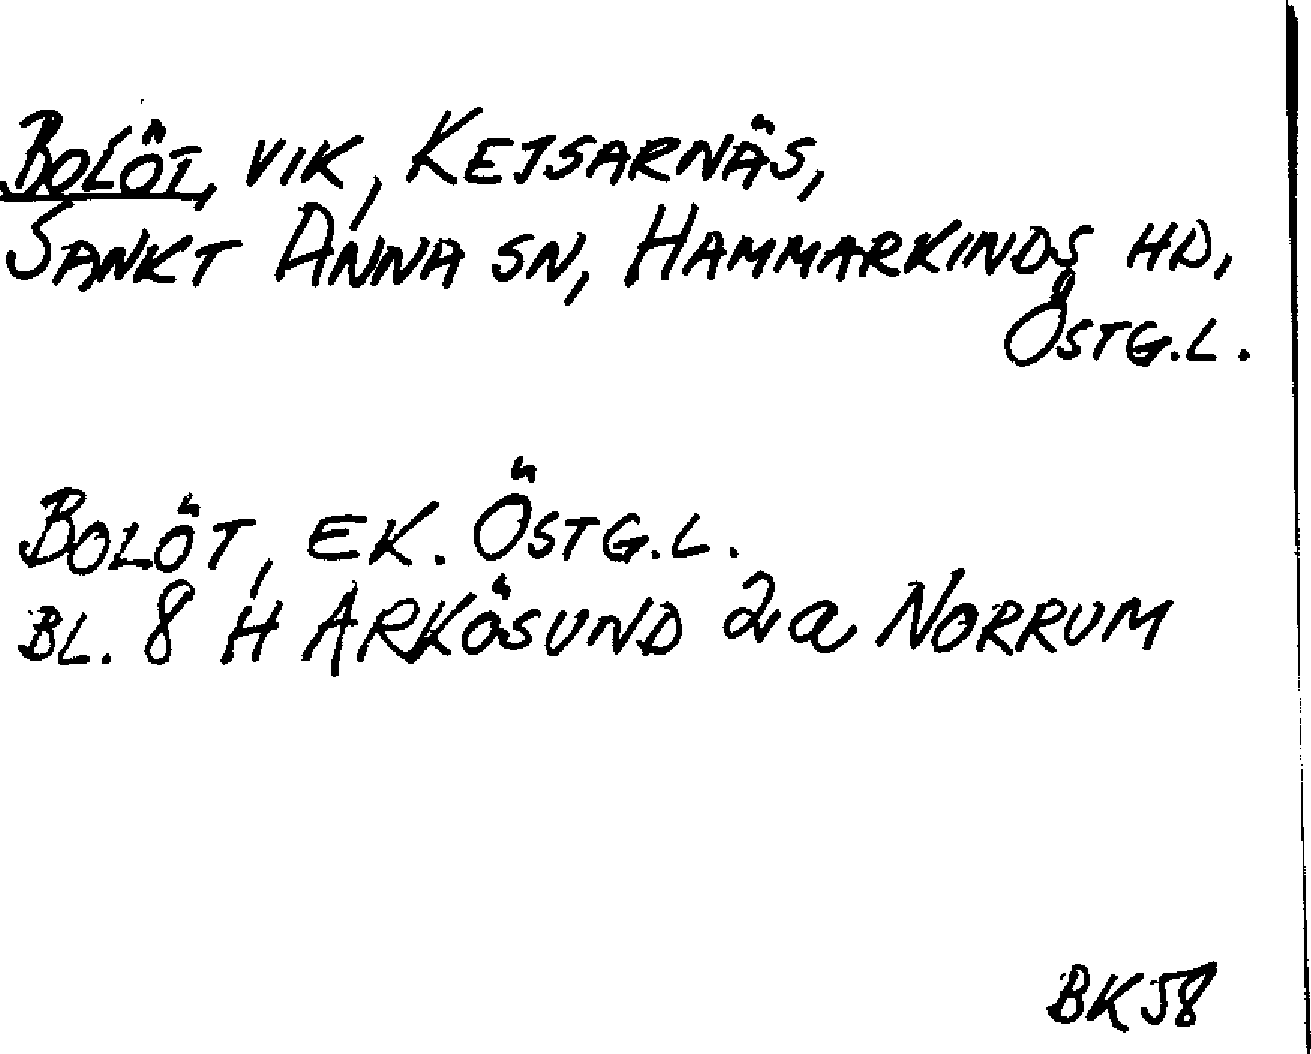 BOLÖT, VIK, KEJSARNÄS,
SANKT ANNA SN, HAMMARKINDS HD,
ÖSTG.L.
BOLÖT, EK. ÖSTG.L.
BL. 8 H ARKÖSUND 2a NORRUM
BK58